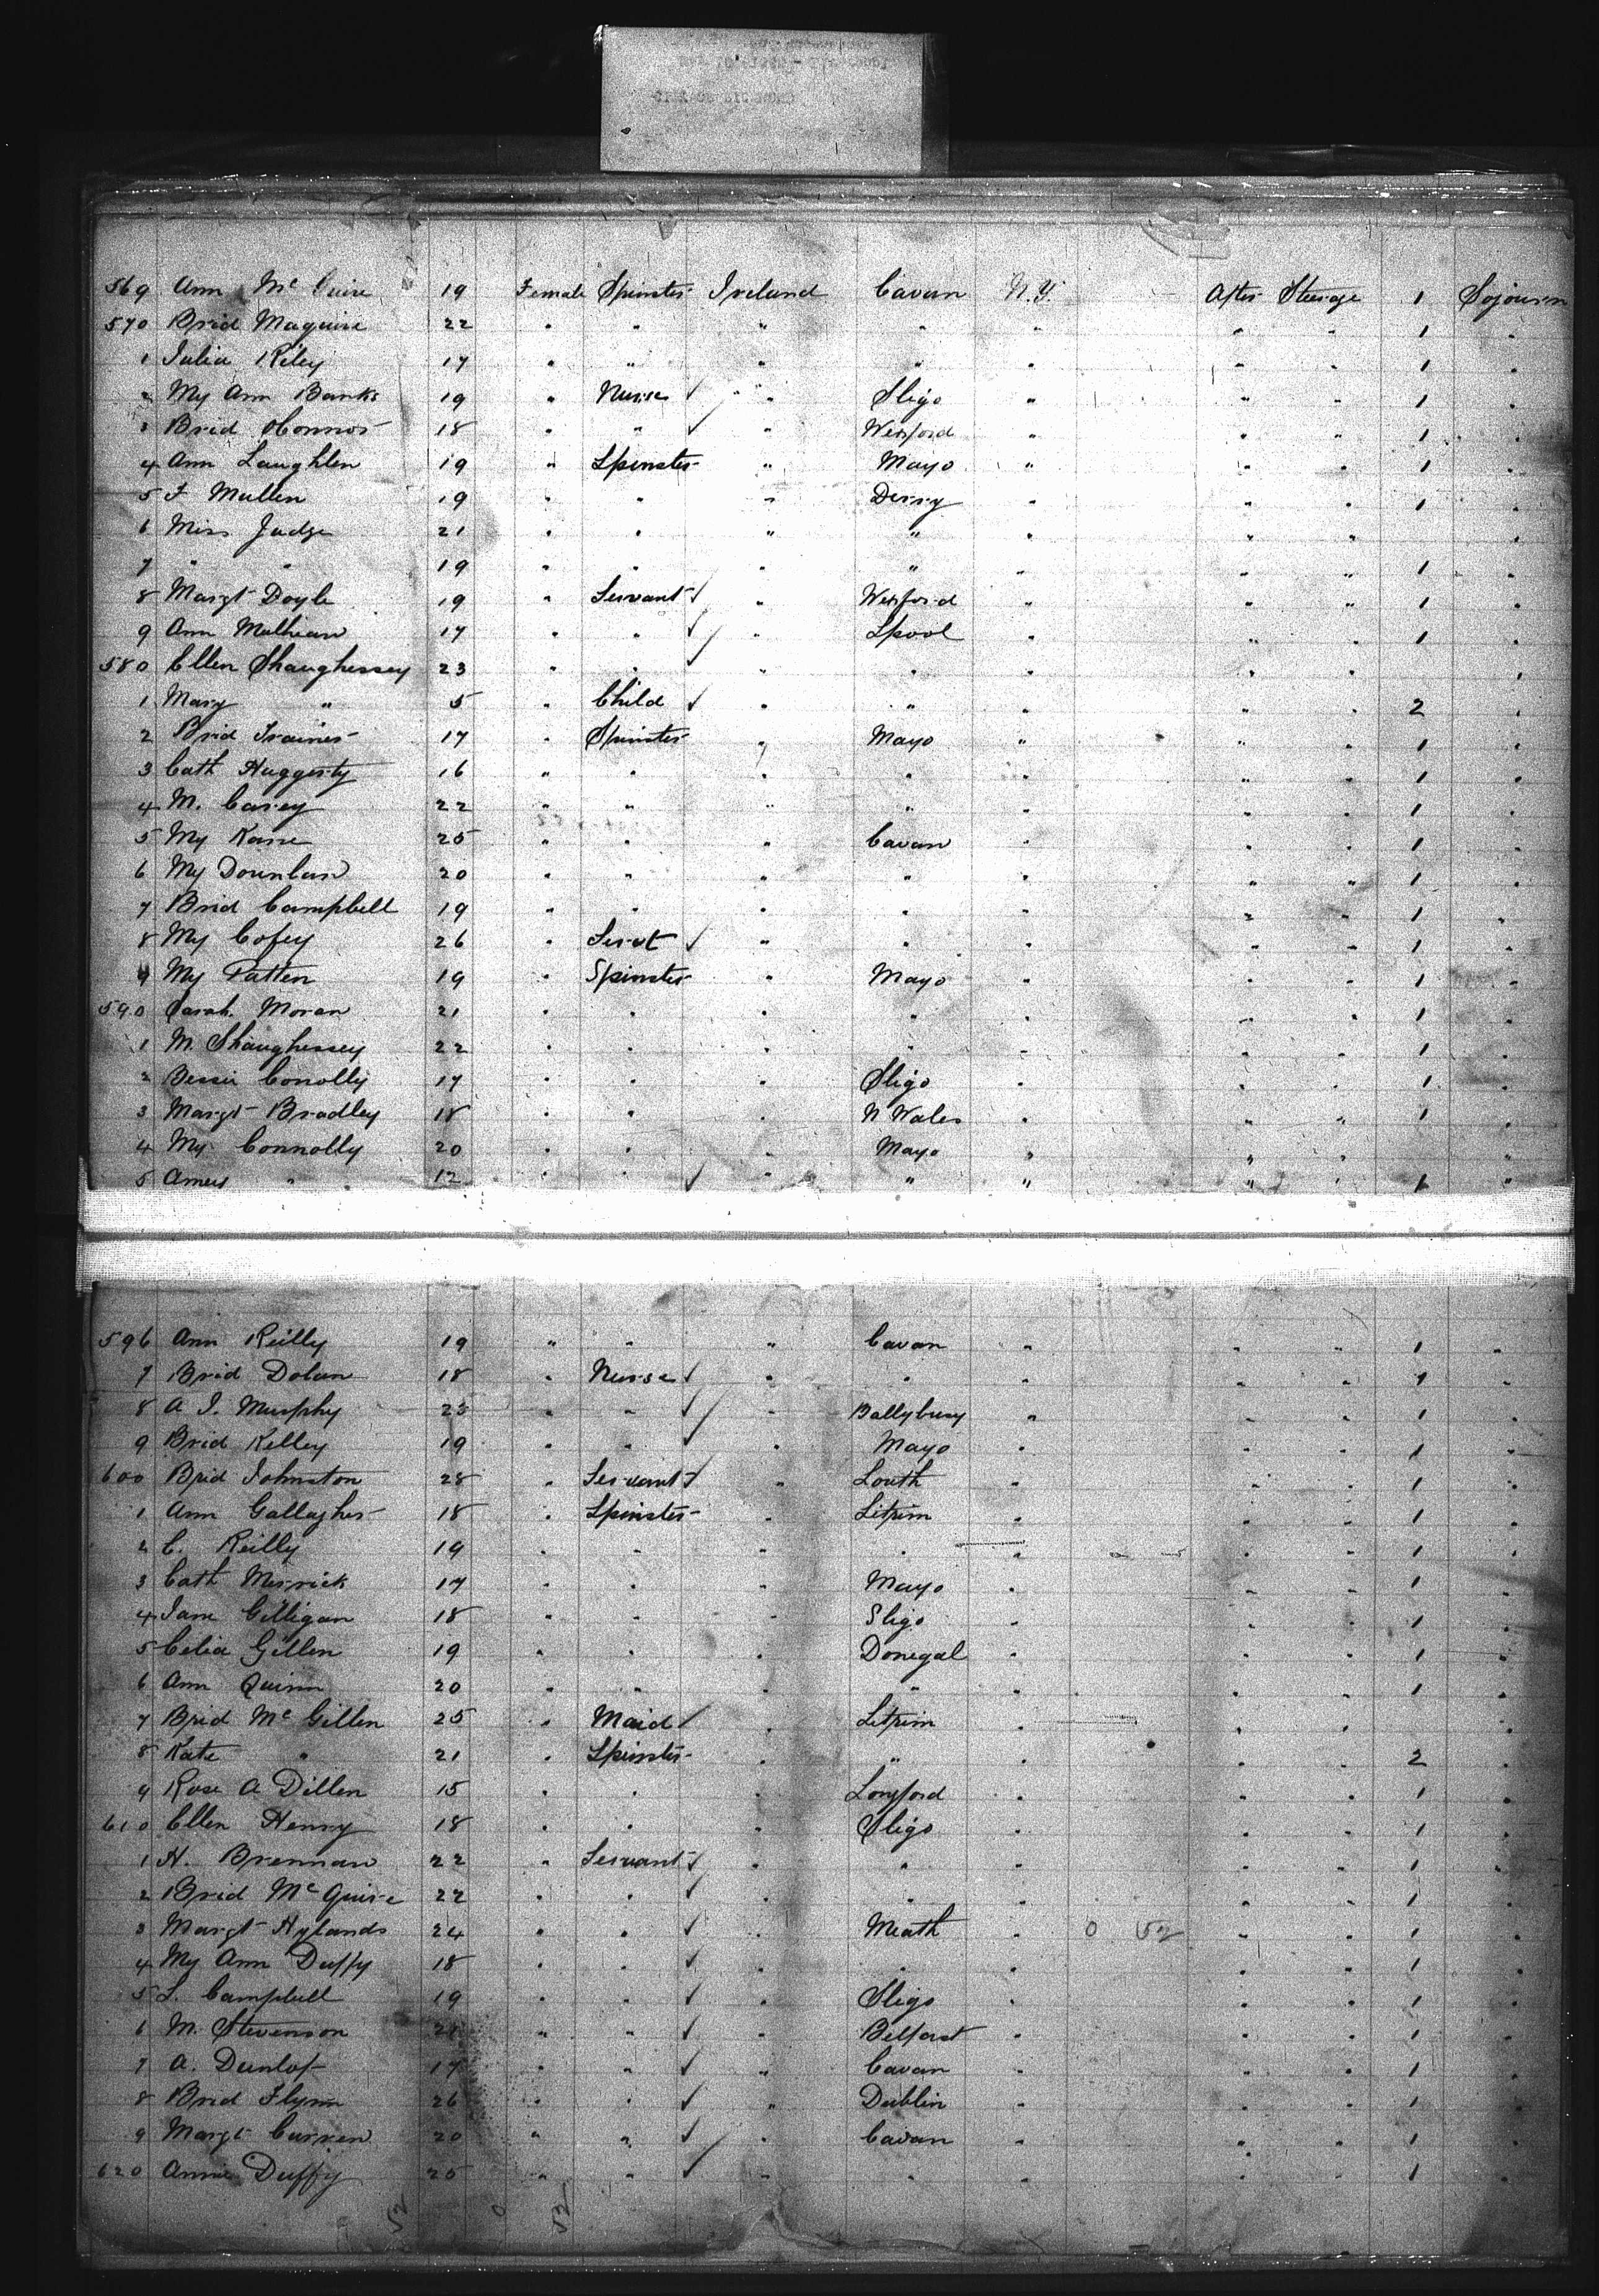 569 Ann McGuire 19 Female Spinster Ireland Cavan N.Y. After Steerage 1 Sojourn
570 Brid Maguire 22 " " " " " " " 1 "
1 Julia Riley 17 " " " " " " " 1 "
2 My Ann Banks 19 " Nurse ✓ " Sligo " " " 1 "
3 Brid OConnor 18 " " ✓ " Wexford " " " 1 "
4 Ann Laughlen 19 " Spinster " Mayo " " " 1 "
5 F Mullen 19 " " " Derry " " " 1 "
6 Miss Judge 21 " " " " " " " "
7 " " 19 " " " " " " " 1 "
8 Margt Doyle 19 " Servant ✓ " Wexford " " " 1 "
9 Ann 17 " " ✓ " Lpool " " " 1 "
580 Ellen Shaughessey 23 " " ✓ " " " " " "
1 Mary " 5 " Child ✓ " " " " " 2 "
2 Brid Trainer 17 " Spinster " Mayo " " " 1 "
3 Cath Haggerty 16 " " " " " " " 1 "
4 M. Carey 22 " " " " " " " 1 "
5 My Kane 25 " " " Cavan " " " 1 "
6 My 20 " " " " " " " 1 "
7 Brid Campbell 19 " " " " " " " 1 "
8 My Cofey 26 " Servt ✓ " " " " " 1 "
9 My Patten 19 " Spinster " Mayo " " " 1 "
590 Sarah Moran 21 " " " " " " " 1 "
1 M. Shaughessey 22 " " " " " " " 1 "
2 Bessie Conolly 17 " " " Sligo " " " 1 "
3 Margt Bradley 18 " " " N Wales " " " 1 "
4 My Connolly 20 " " " Mayo " " " "
5 " 12 " " ✓ " " " " " 1 "
596 Ann Reilly 19 " " " Cavan " " " 1 "
7 Brid Dolan 18 " Nurse ✓ " " " " " 1 "
8 A J. Murphy 23 " " ✓ " Ballybury " " " 1 "
9 Brid Kelley 19 " " ✓ " Mayo " " " 1 "
600 Brid Johnston 28 " Servant ✓ " Louth " " " 1 "
1 Ann Gallagher 18 " Spinster " Litrim " " " 1 "
2 C. Reilly 19 " " " " " " " 1 "
3 Cath Merrick 17 " " " Mayo " " " 1 "
4 Jane Gilligan 18 " " " Sligo " " " 1 "
5 Celia Gillen 19 " " " Donegal " " " 1 "
6 Ann Quinn 20 " " " " " " " 1 "
7 Brid McGillen 25 " Maid ✓ " Litrim " " " "
8 Kate " 21 " Spinster " " " " " 2 "
9 Rose A Dillen 15 " " " Longford " " " 1 "
610 Ellen Henry 18 " " " Sligo " " " 1 "
1 H. Brennan 22 " Servant ✓ " " " " " 1 "
2 Brid McQuire 22 " " ✓ " " " " " 1 "
3 Margt Hylands 24 " " ✓ " Meath " 0 52 " " 1 "
4 My Ann Duffy 18 " " ✓ " " " " " 1 "
5 L. Campbell 19 " " ✓ " Sligo " " " 1 "
6 M. Stevenson 21 " " ✓ " Belfast " " " 1 "
7 A. Dunlop 17 " " ✓ " Cavan " " " 1 "
8 Brid Flynn 26 " " ✓ " Dublin " " " 1 "
9 Margt Curren 20 " " ✓ " Cavan " " " 1 "
620 Annie Duffy 25 " " ✓ " " " " " 1 "
52 0 52